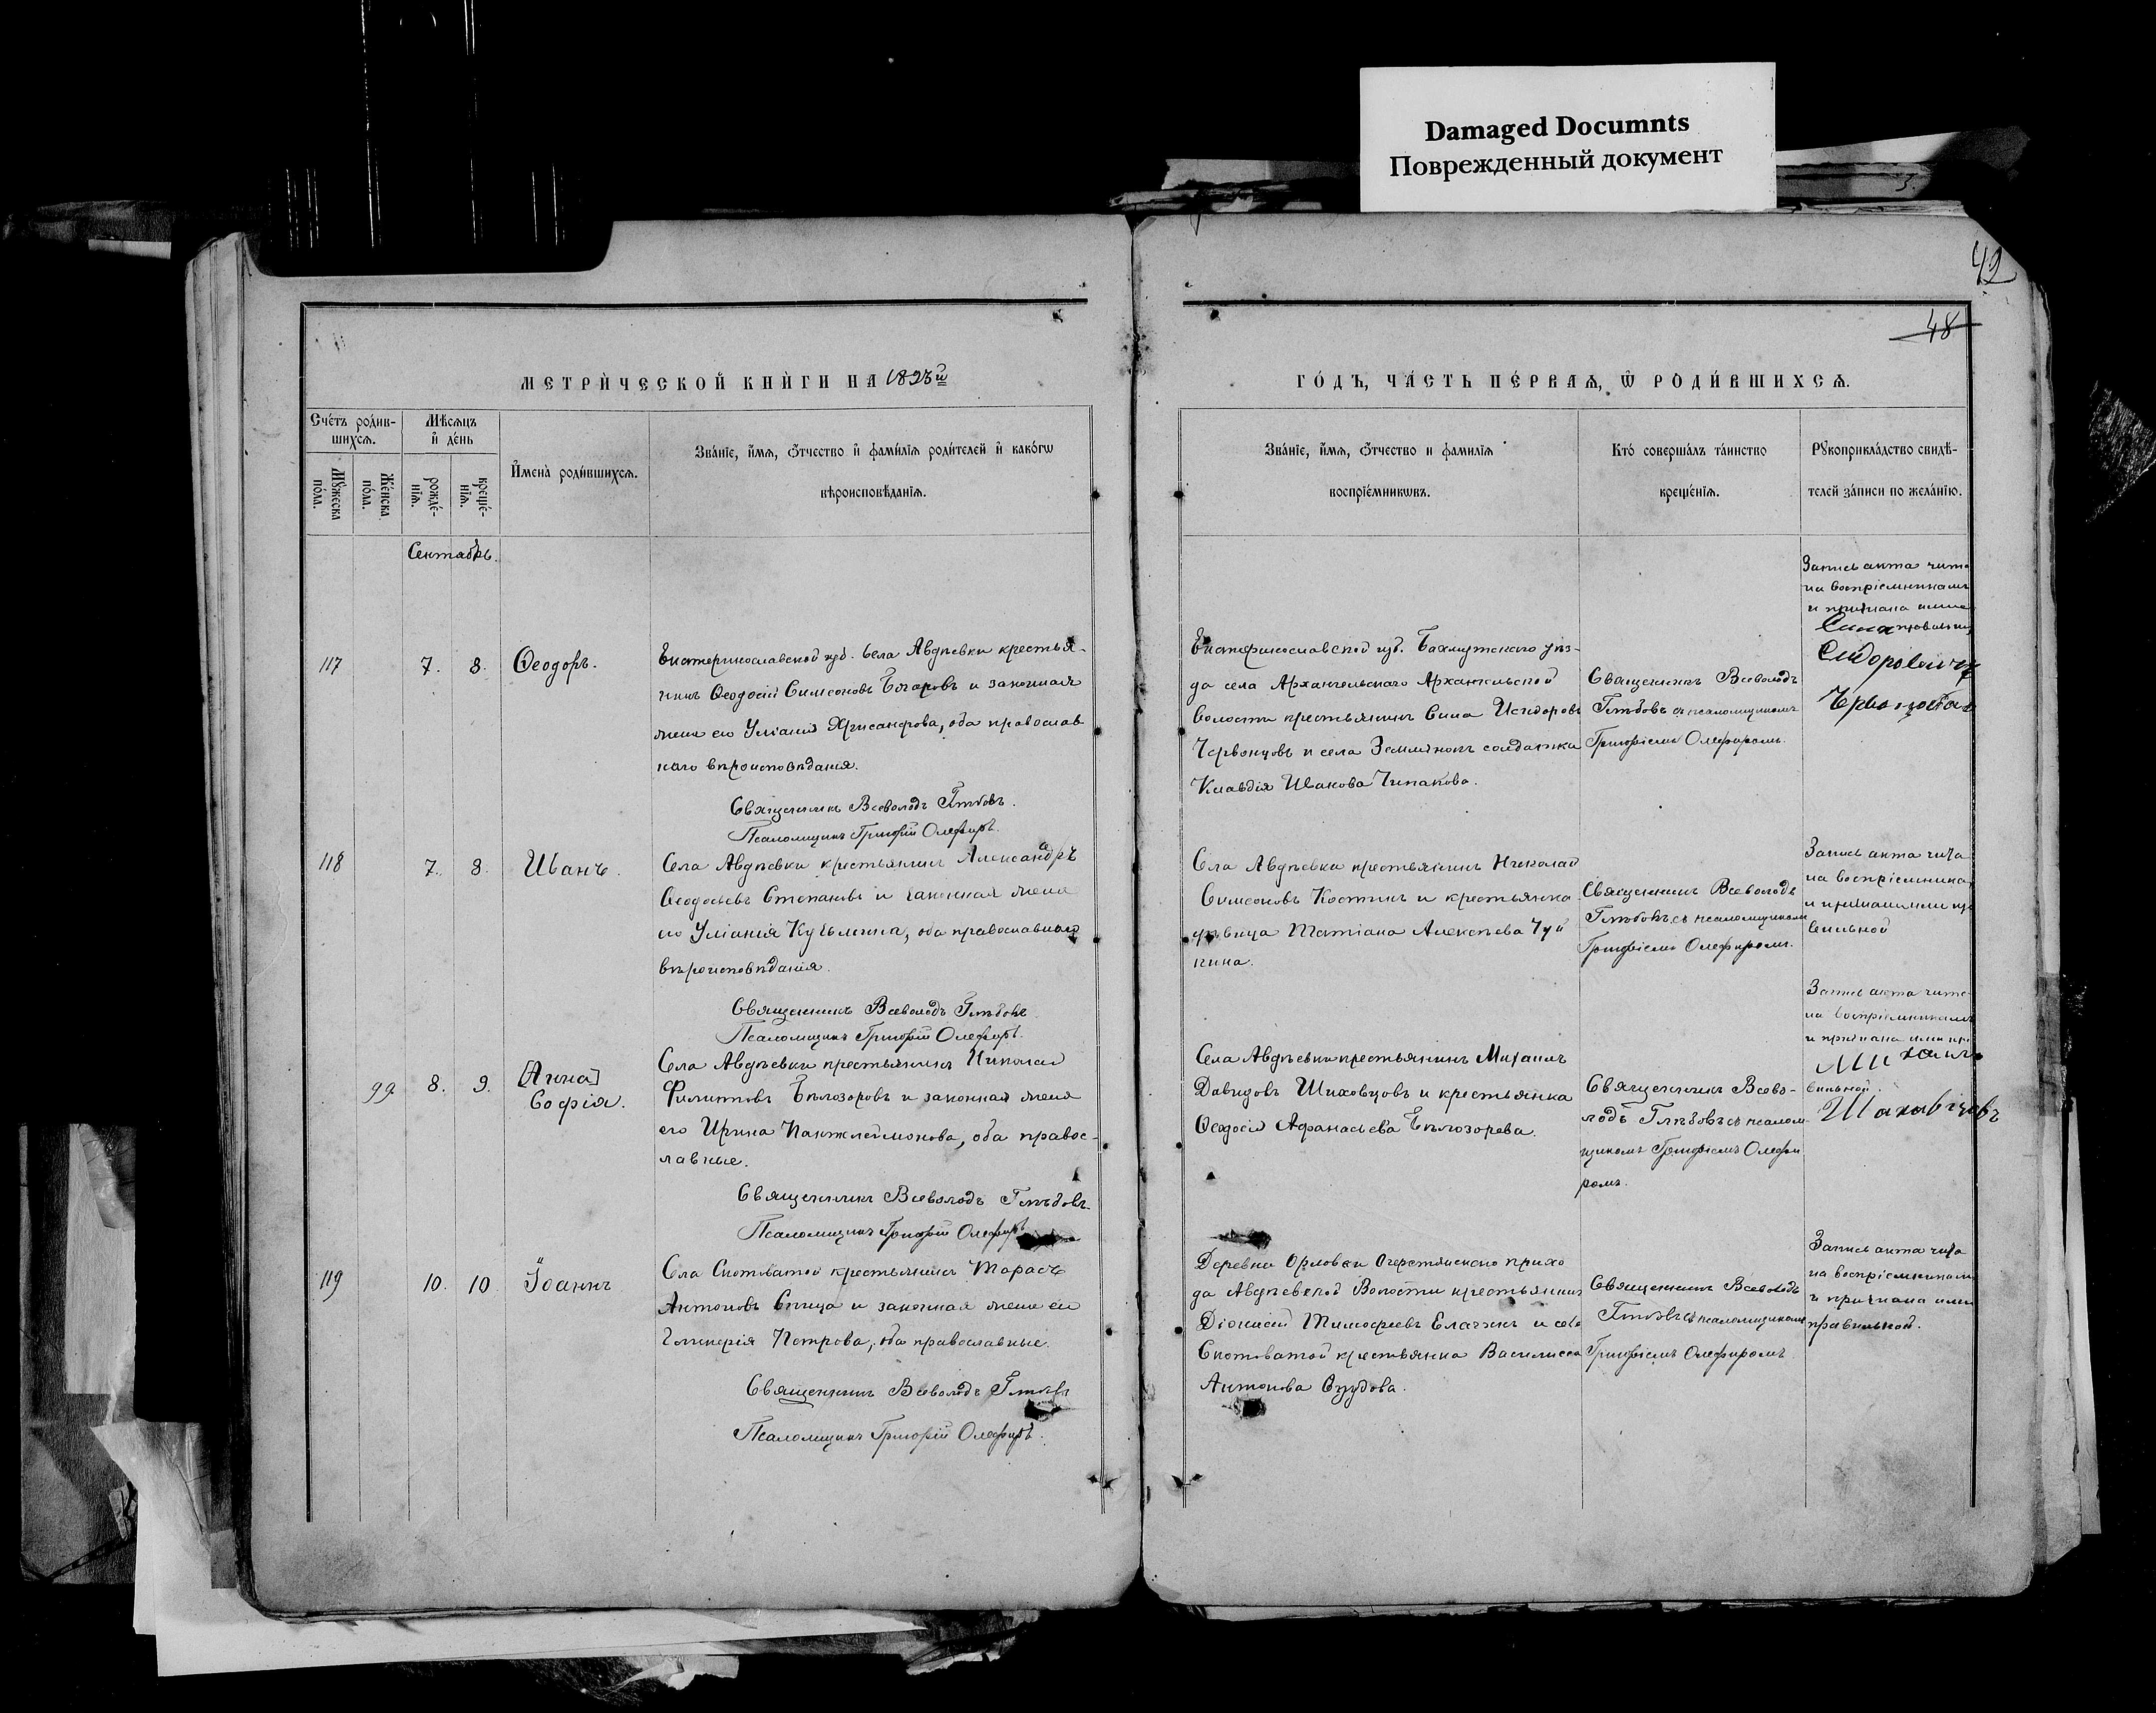 Damaged Documnts
Поврежденный документ
42
48
МЕТРИ́ЧЕСКОЙ КНИ́ГИ НА 1893й
ГО́ДЪ, ЧА́СТЬ ПЕ́РВАѦ, Ѿ РОДИ́ВШИХСѦ.
Сче́тъ роди́в-
шихсѧ.
Мѣ́сѧцъ
и҆ де́нь
И҆мена̀ роди́вшихсѧ.
Зва́нїе, и҆́мѧ, ѻ҆́тчество и҆ фамі́лїѧ роди́телей и҆ како́гѡ
вѣроисповѣ́данїѧ.
Мꙋ́жеска
по́ла.
Же́нска
по́ла.
рожде́-
нїѧ.
креще́-
нїѧ.
Зва́нїе, и҆́мѧ, ѻ҆́тчество и фамилїѧ
воспрїе́мникѡвъ.
Кто́ соверша́лъ та́инство
креще́нїѧ.
Рꙋкоприкла́дство свидѣ́-
телей за́писи по жела́нїю.
Сентябрь.
117
7.
8.
Ѳеодоръ.
Екатеринославской губ. села Авдѣевки крестья-
нинъ Ѳеодосій Симеоновъ и законная
жена его Уліанія Хрисанфова, оба православ
наго вѣроисповѣданія.
Священникъ Всеволодъ Глѣбовъ.
Псаломщикъ Григорій Олефиръ.
Екатеринославской губ. Бахмутскаго уѣз-
да села Архангельскаго Архангельской
волости крестьянинъ Сила Исидоровъ
Червонцовъ и села солдатка
Клавдія Иванова
Священникъ Всеволодъ
Глѣбовъ съ псаломщикомъ
Григоріемъ Олефиромъ.
Запись акта чита
на воспріемникамъ
и признана ими
правильной
Сила
Сидоровичъ
118
7.
8.
Иванъ.
Села Авдѣевки крестьянинъ Александръ
Ѳеодосьевъ Степановъ и законная жена
его Уліанія Кузьмина, оба православнаго
вѣроисповѣданія.
Священникъ Всеволодъ Глѣбовъ
Псаломщикъ Григорій Олефиръ.
Села Авдѣевки крестьянинъ Николай
Симеоновъ Костинъ и крестьянка
дѣвица Татіана Алексѣева Чуй
кина.
Священникъ Всеволодъ
Глѣбовъ съ псаломщикомъ
Григоріемъ Олефиромъ.
Запись акта чита
на воспріемника
и признана ими пра
вильной
99.
8.
9.
[Анна]
Софія.
Села Авдѣевки крестьянинъ Николай
Филипповъ Бѣлозоровъ и законная жена
его Ирина Пантелеймонова, оба правос-
лавные.
Священникъ Всеволодъ Глѣбовъ.
Псаломщикъ Григорій Олефиръ
Села Авдѣевки крестьянинъ Михаилъ
Давидовъ Шиховцовъ и крестьянка
Ѳеодосія Афанасьева Бѣлозорева.
Священникъ Всево-
лодъ Глѣбовъ съ псалом-
щикомъ Григоріемъ Олефи
ромъ.
Запись акта чита-
на воспріемникамъ
и признана ими пра
Михаилъ
вильной.
Шахавцовъ
119
10.
10
Іоаннъ
Села Скотоватой крестьянинъ Тарасъ
Антоновъ Спица и законная жена его
Гликерія Петрова, оба православные.
Священникъ Всеволодъ Глѣбовъ
Псаломщикъ Григорій Олефиръ.
Деревни Орловки Очеретинскаго прихо
да Авдѣевской Волости крестьянинъ
Діонисій Тимофеевъ и села
Скотоватой крестьянка Василисса
Антонова
Священникъ Всеволодъ
Глѣбовъ съ псаломщикомъ
Григоріемъ Олефиромъ
Запись акта чита
на воспріемникамъ
и признана ими
правильной.